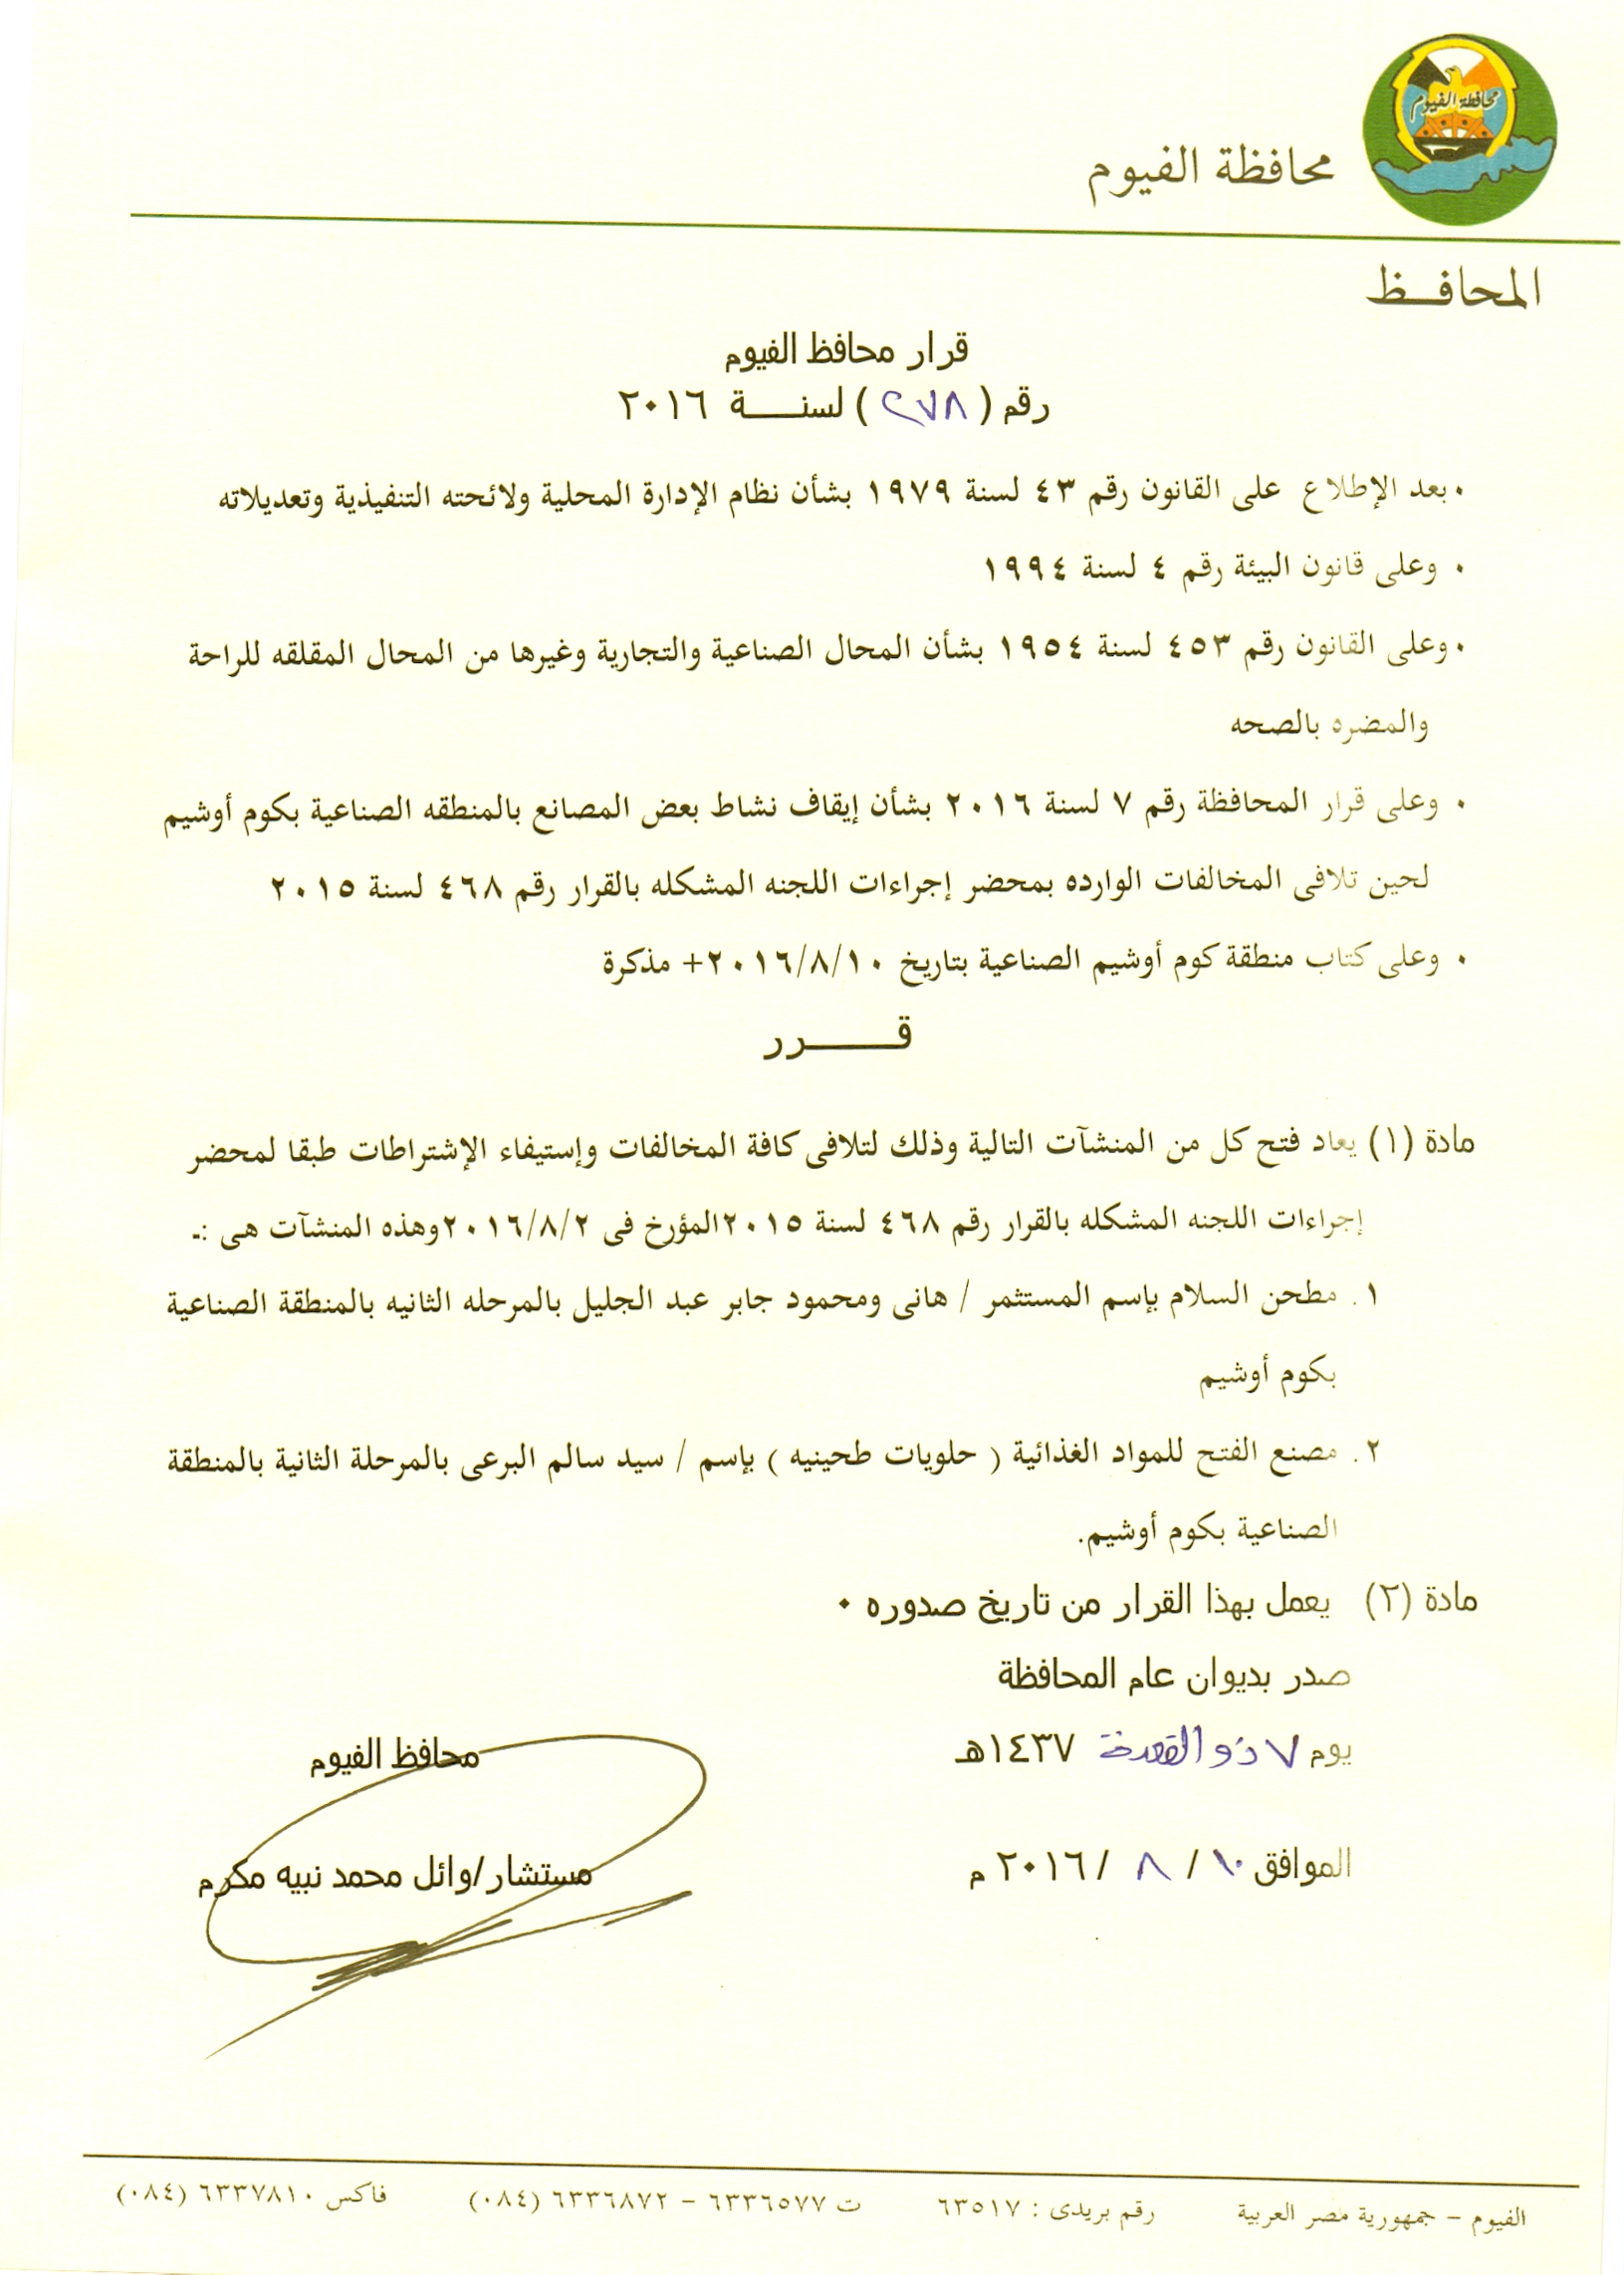 محافظة الفيوم
محافظة الفيوم
المحافــظ
قرار محافظ الفيوم
رقم ( ٢٧٨ ) لسنــــة ٢٠١٦
• بعد الإطلاع على القانون رقم ٤٣ لسنة ١٩٧٩ بشأن نظام الإدارة المحلية ولائحته التنفيذية وتعديلاته
• وعلى قانون البيئة رقم ٤ لسنة ١٩٩٤
• وعلى القانون رقم ٤٥٣ لسنة ١٩٥٤ بشأن المحال الصناعية والتجارية وغيرها من المحال المقلقه للراحة
والمضره بالصحه
• وعلى قرار المحافظة رقم ٧ لسنة ٢٠١٦ بشأن إيقاف نشاط بعض المصانع بالمنطقه الصناعية بكوم أوشيم
لحين تلافى المخالفات الوارده بمحضر إجراءات اللجنه المشكله بالقرار رقم ٤٦٨ لسنة ٢٠١٥
• وعلى كتاب منطقة كوم أوشيم الصناعية بتاريخ ٢٠١٦/٨/١٠+ مذكرة
قــــــرر
مادة (١) يعاد فتح كل من المنشآت التالية وذلك لتلافى كافة المخالفات وإستيفاء الإشتراطات طبقا لمحضر
إجراءات اللجنه المشكله بالقرار رقم ٤٦٨ لسنة ٢٠١٥المؤرخ فى ٢٠١٦/٨/٢وهذه المنشآت هى :ـ
١. مطحن السلام بإسم المستثمر / هانى ومحمود جابر عبد الجليل بالمرحله الثانيه بالمنطقة الصناعية
بكوم أوشيم
٢. مصنع الفتح للمواد الغذائية ( حلويات طحينيه ) بإسم / سيد سالم البرعى بالمرحلة الثانية بالمنطقة
الصناعية بكوم أوشيم.
مادة (٢) يعمل بهذا القرار من تاريخ صدوره •
صدر بديوان عام المحافظة
يوم ٧ ذو القعدة ١٤٣٧هـ
محافظ الفيوم
الموافق ١٠ / ٨ / ٢٠١٦ م
مستشار/وائل محمد نبيه مكرم
الفيوم – جمهورية مصر العربية رقم بريدى : ٦٣٥١٧ ت ٦٣٣٦٥٧٧ – ٦٣٣٦٨٧٢ (٠٨٤) فاكس ٦٣٣٧٨١٠ (٠٨٤)